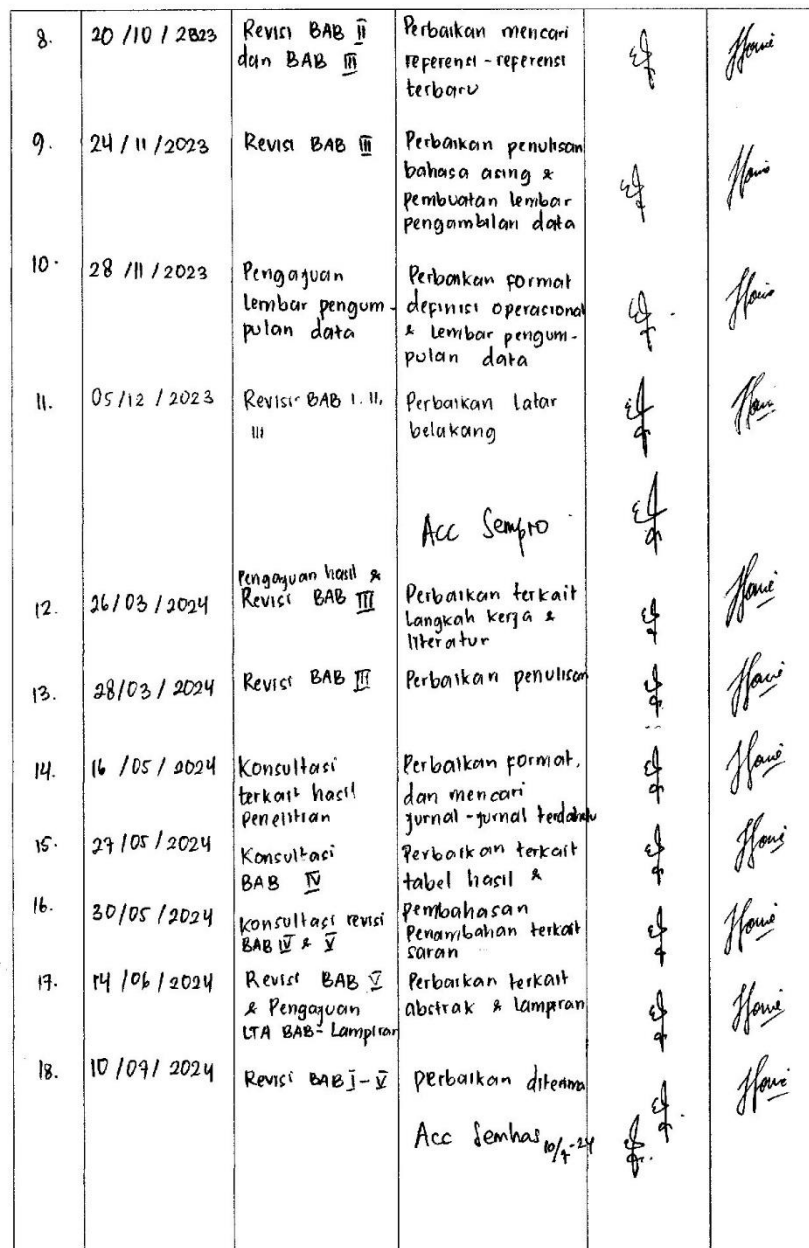 8.
20/10/2023
Revisi BAB II
dan BAB III
Perbaikan mencari
referensi-referensi
terbaru
9.
24/11/2023
Revisi BAB III
Perbaikan penulisan
bahasa asing &
pembuatan lembar
pengambilan data
10.
28/11/2023
Pengajuan
lembar pengum-
pulan data
Perbaikan format
definisi operasional
& lembar pengum-
pulan data
11.
05/12/2023
Revisi BAB I, II,
III
Perbaikan latar
belakang
Acc Sempro
12.
26/03/2024
Pengajuan hasil &
Revisi BAB III
Perbaikan terkait
langkah kerja &
literatur
13.
28/03/2024
Revisi BAB III
Perbaikan penulisan
14.
16/05/2024
Konsultasi
terkait hasil
penelitian
Perbaikan format,
dan mencari
jurnal-jurnal terdahulu
15.
27/05/2024
Konsultasi
BAB IV
Perbaikan terkait
tabel hasil &
pembahasan
16.
30/05/2024
Konsultasi revisi
BAB IV & V
Penambahan terkait
saran
17.
14/06/2024
Revisi BAB V
& Pengajuan
LTA BAB-Lampiran
Perbaikan terkait
abstrak & lampiran
18.
10/07/2024
Revisi BAB I-V
perbaikan diterima
Acc Semhas 10/7-24